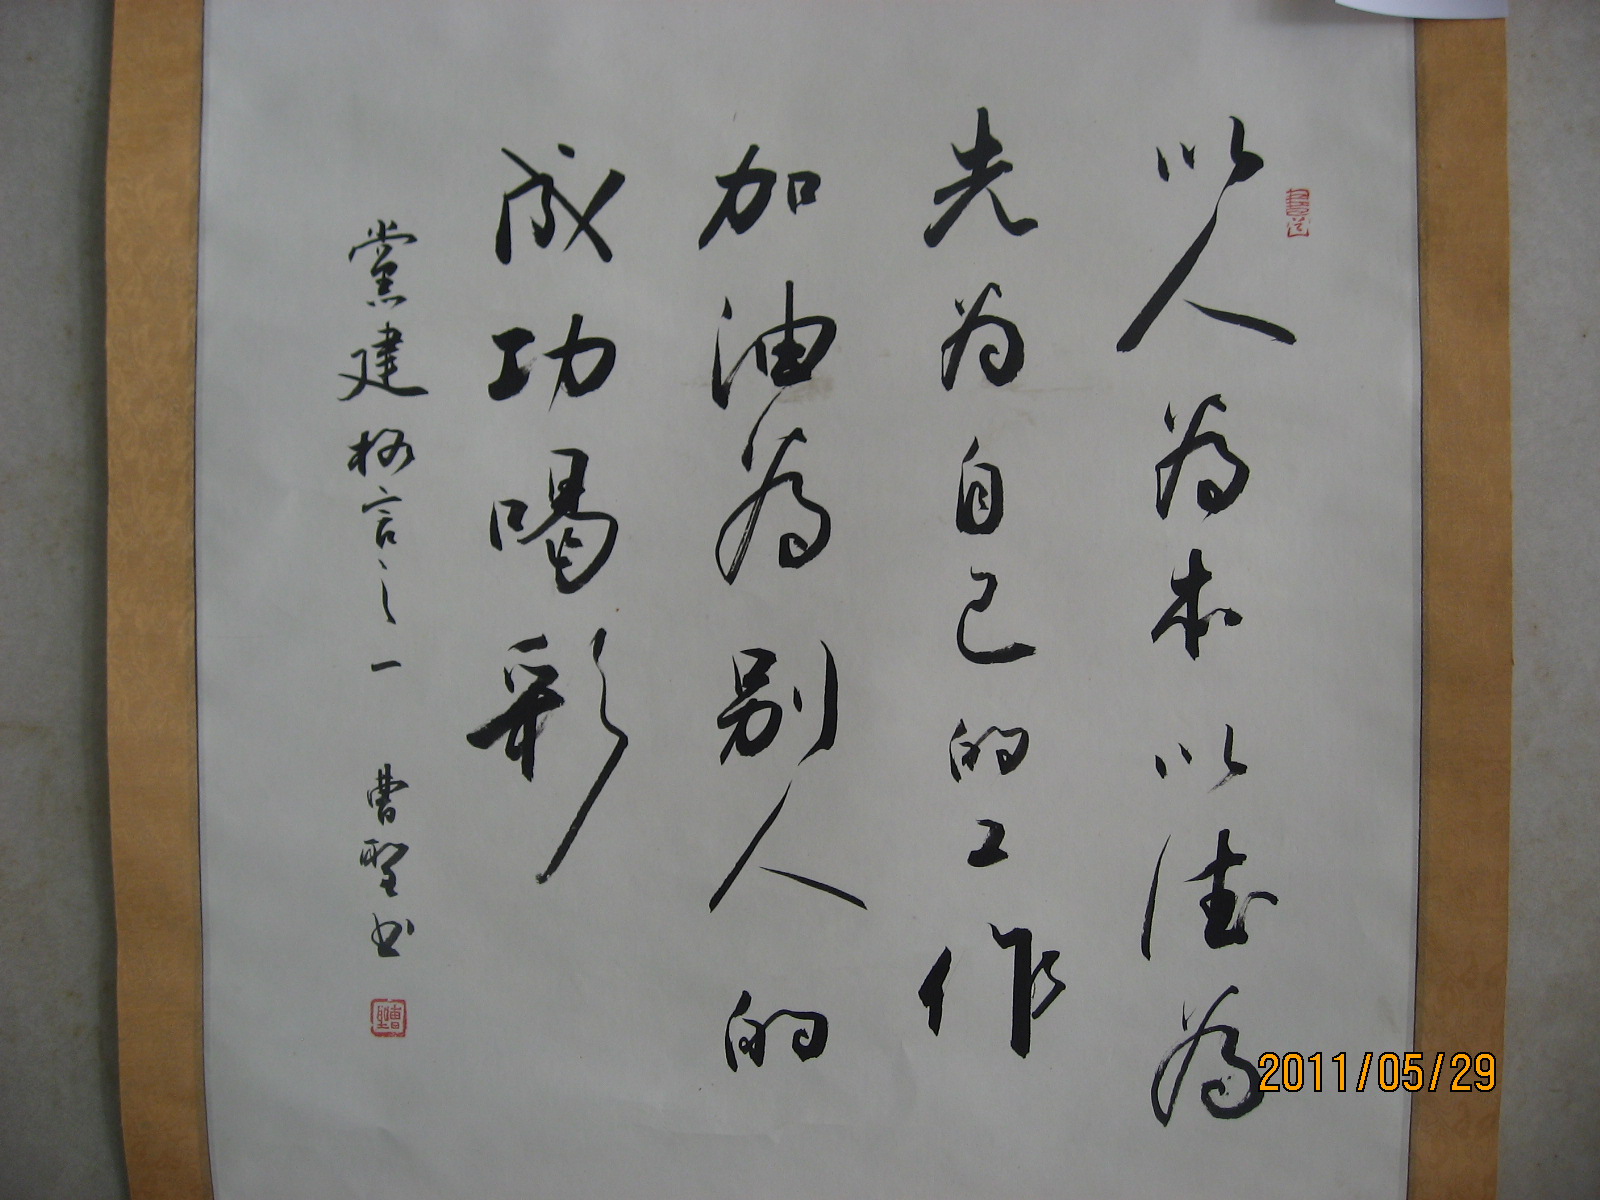 以人為本以德為
先为自己的工作
加油為别人的
成功喝彩
黨建格言之一 曹聖书
2011/05/29